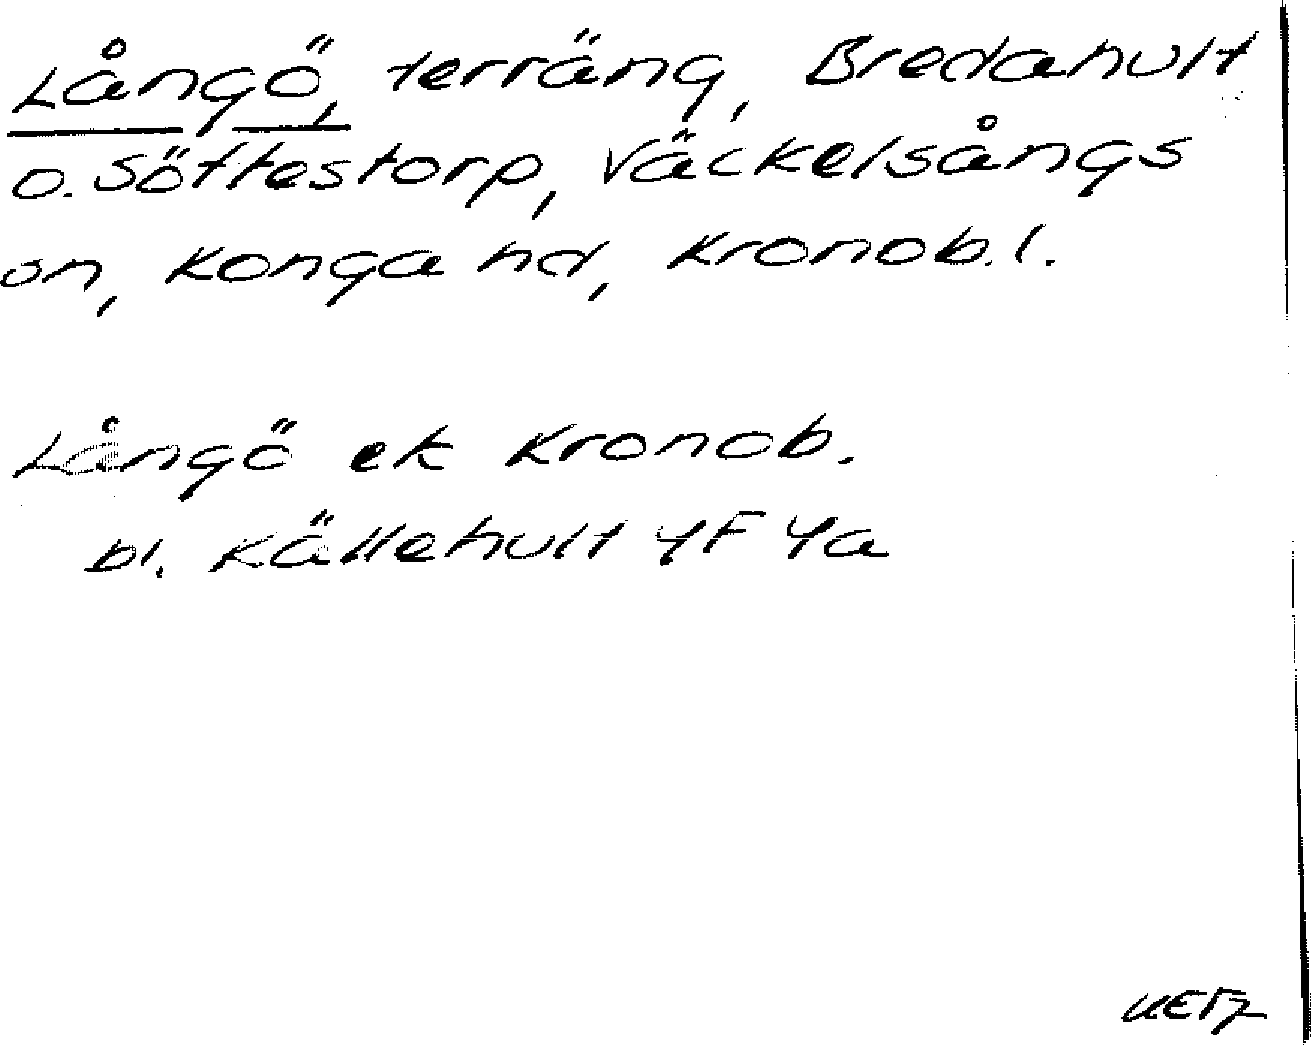 Långö, terräng, Bredahult
o. Söftestorp, Väckelsångs
sn, Konga hd, Kronob. l.
Långö ek Kronob.
bl. Källehult 4F 4a